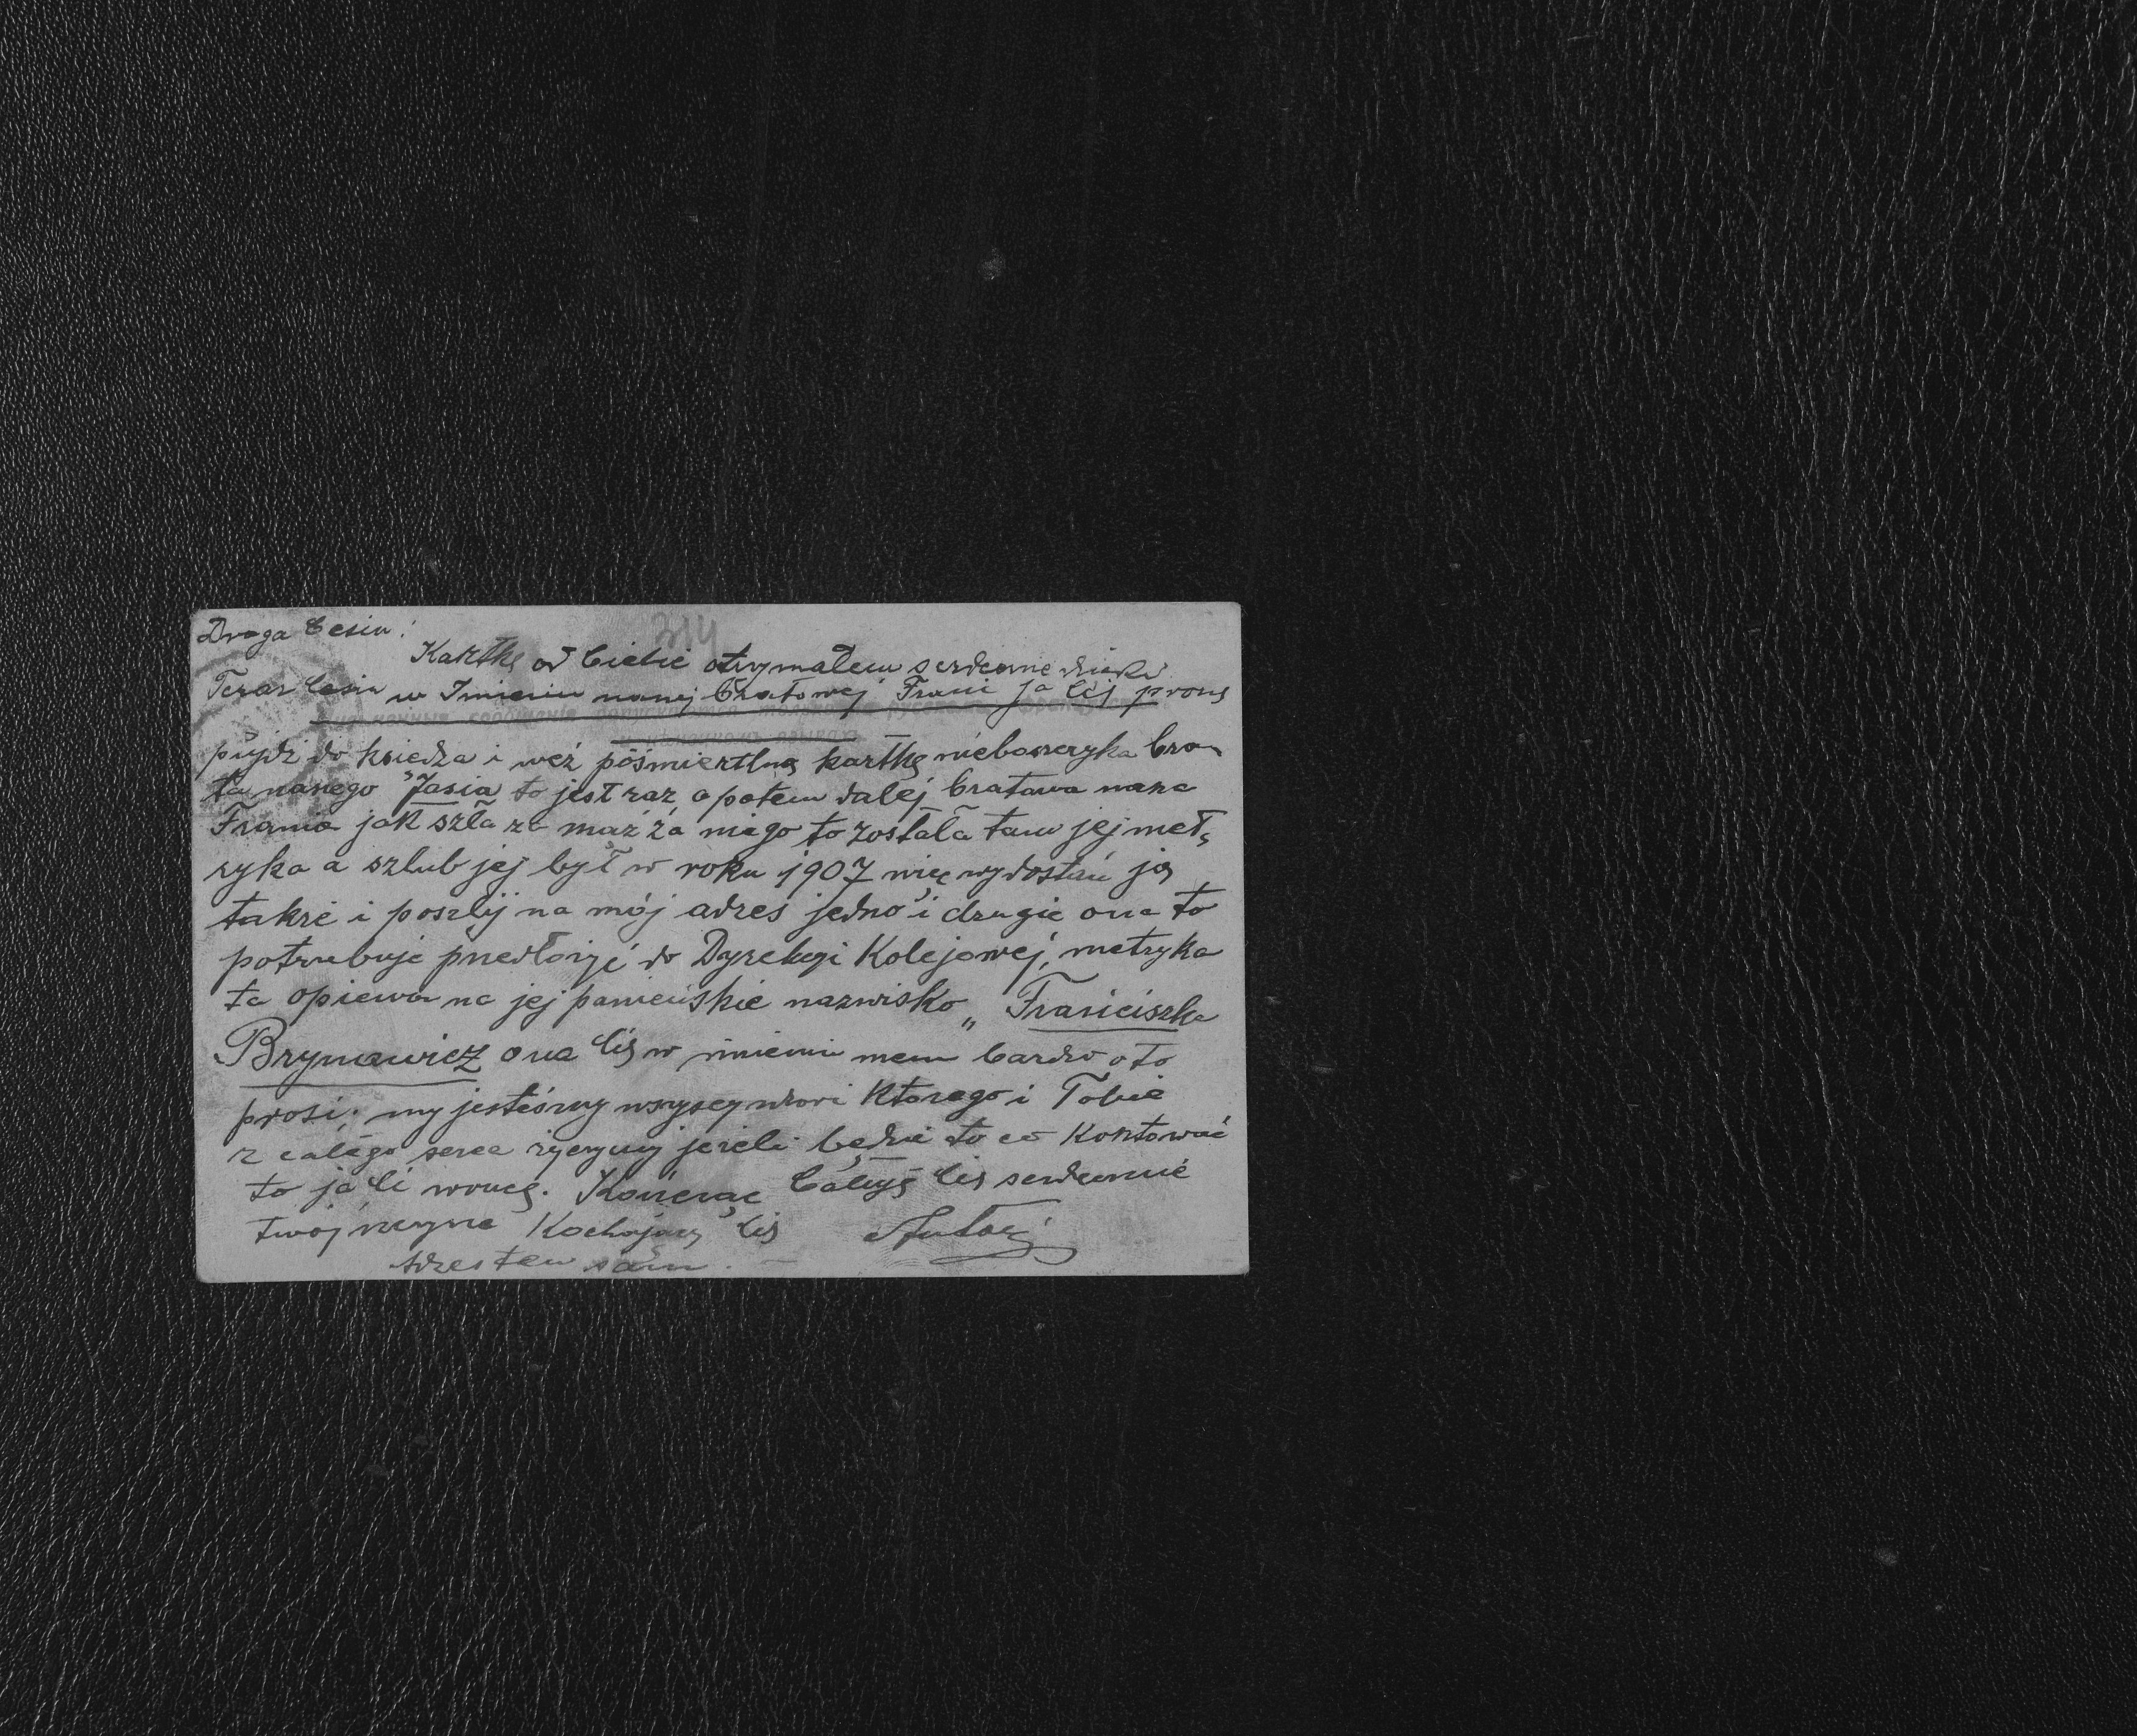 314
Droga Cesiu!
Kartkę od Ciebie otrzymałem serdeczne dzięki
Teraz Cesiu w Imieniu naszej bratowej Frani ja Cię proszę
pujdź do księdza i weź pośmiertlną kartkę nieboszczyka bra-
ta naszego "Jasia to jest raz, a potem dalej bratowa nasza
Frania jak szła za mąż za niego to została tam jej met-
ryka a szlub jej był w roku 1907 więc wydostań ją
także i poszlij na mój adres jedno i drugie ona to
potrzebuje przedłożyć do Dyrekcyi Kolejowej, metryka
ta opiewa na jej panieńskie nazwisko „Franciszka
Brynawicz ona Cię w imieniu mem bardzo o to
prosi; my jesteśmy wszyscy zdrowi Ktorego i Tobie
z całego serca życzymy jeżeli będzie to co kosztować
to ja Ci wrucę. Kończąc Całuję Cię serdecznie
twoj Kochający Cię Antoś
Adres ten sam.